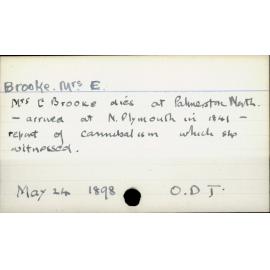 Brooke. Mrs E.
Mrs E Brooke dies at Palmerston North.
- arrived at N. Plymouth in 1841 -
report of cannibalism which she
witnessed.
May 24 1898 O.D.T.